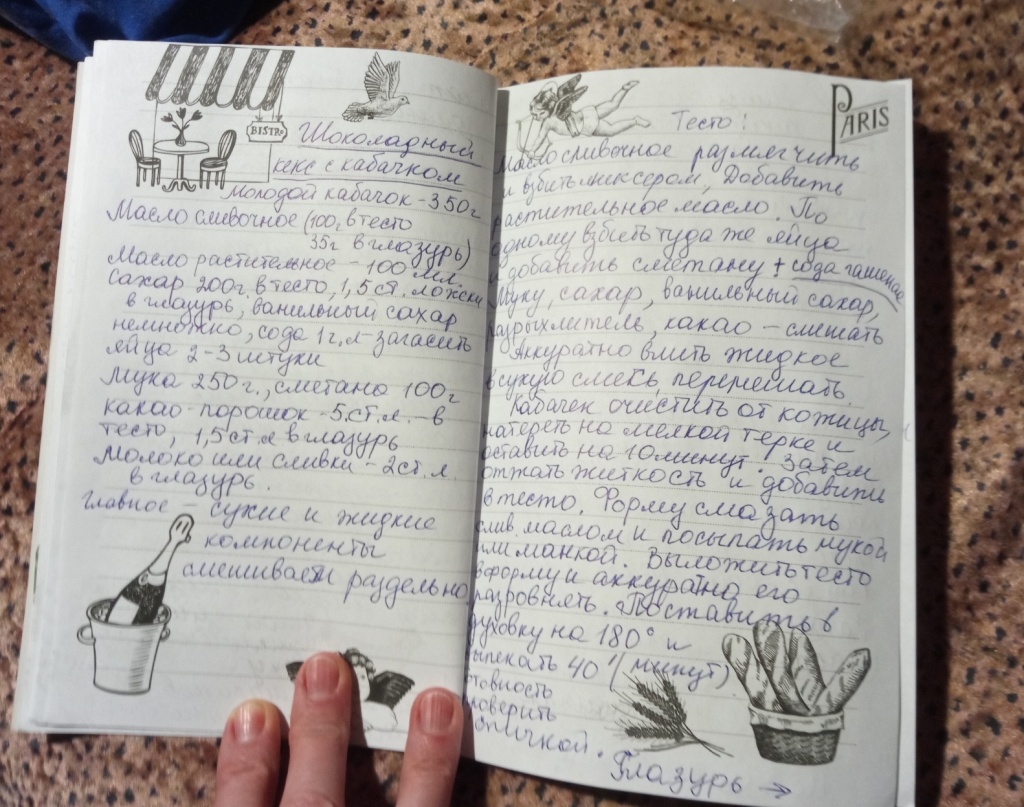 BISTRO
Шоколадный
кекс с кабачком
Молодой кабачок - 350 г
Масло сливочное (100 г в тесто
35 г в глазурь)
Масло растительное - 100 мл.
Сахар 200 г. в тесто, 1,5 ст. ложки
в глазурь, ванильный сахар
немножко, сода 1 г. л - загасить
яйца 2-3 штуки
Мука 250 г., сметана 100 г
какао-порошок - 5 ст. л. в
тесто, 1,5 ст. л в глазурь
Молоко или сливки - 2 ст. л.
в глазурь.
Главное - сухие и жидкие
компоненты
смешиваем раздельно
PARIS
Тесто!
Масло сливочное размягчить
и взбить миксером, Добавить
растительное масло. По
одному взбить туда же яйца
и добавить сметану + сода гашеная
Муку, сахар, ванильный сахар,
разрыхлитель, какао - смешать
Аккуратно влить жидкое
в сухую смесь, перемешать.
Кабачек очистить от кожицы,
натереть на мелкой терке и
оставить на 10 минут. Затем
отжать житкость и добавить
в тесто. Форму смазать
слив. маслом и посыпать мукой
или манкой. Выложить тесто
в форму и аккуратно его
разровнять. Поставить в
духовку на 180° и
выпекать 40' (минут).
готовность
проверить
спичкой.
Глазурь →